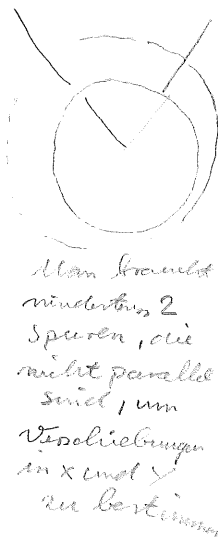 Man braucht
mindestens 2
Spuren, die
nicht parallel
sind, um
Verschiebungen
in x und y
zu bestimmen